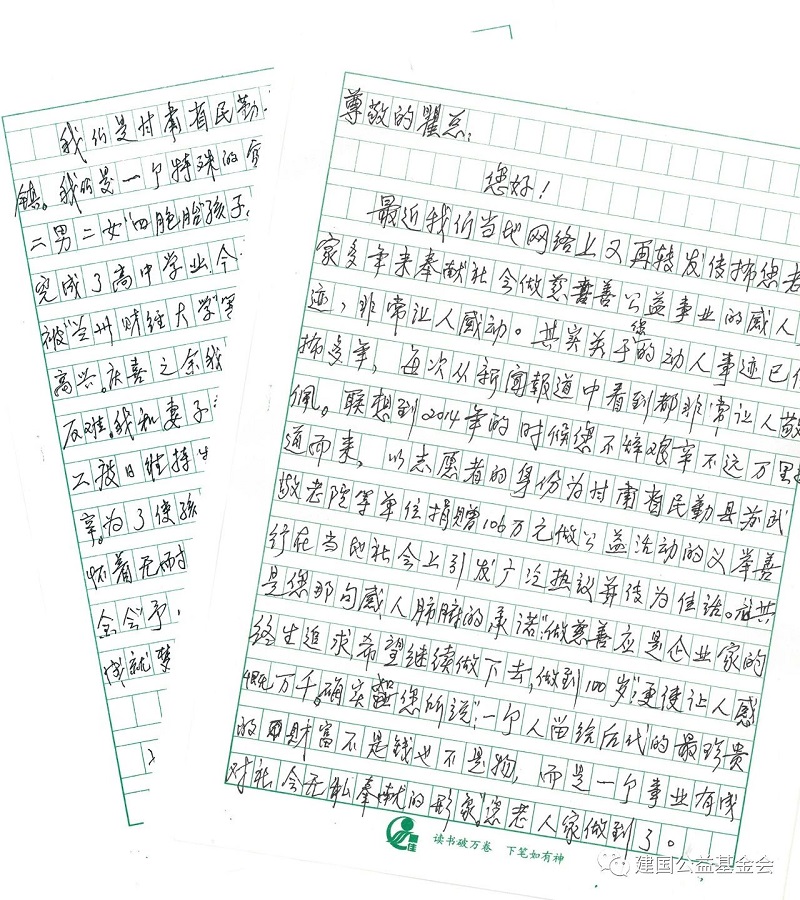 尊敬的瞿总：
您好！
最近我们当地网络上又再转发传播您老
家多年来奉献社会做慈善公益事业的感人
迹，非常让人感动。其实关于您的动人事迹已
播多年，每次从新闻报道中看到都非常让人敬
佩。联想到2014年的时候您不辞艰辛不远万里
道而来，以志愿者的身份为甘肃省民勤县苏武
敬老院等单位捐赠106万元做公益活动的义举善
行在当地社会上引发广泛热议并传为佳话。尤其
是您那句感人肺腑的承诺“做慈善应是企业家的
终生追求希望继续做下去，做到100岁”更使让人感
慨万千。确实如您所说：“一个人留给后代的最珍贵
的财富不是钱也不是物，而是一个事业有成
对社会无私奉献的形象”您老人家做到了。
读书破万卷 下笔如有神
我们是甘肃省民勤
镇。我们是一个特殊的
二男二女“四胞胎”孩子
完成了高中学业今
被“兰州财经大学”等
高兴。庆喜之余我
反难。我和妻子
二被日维持生
辛。为了使孩
怀着无耐
金会予
成就梦
建国公益基金会